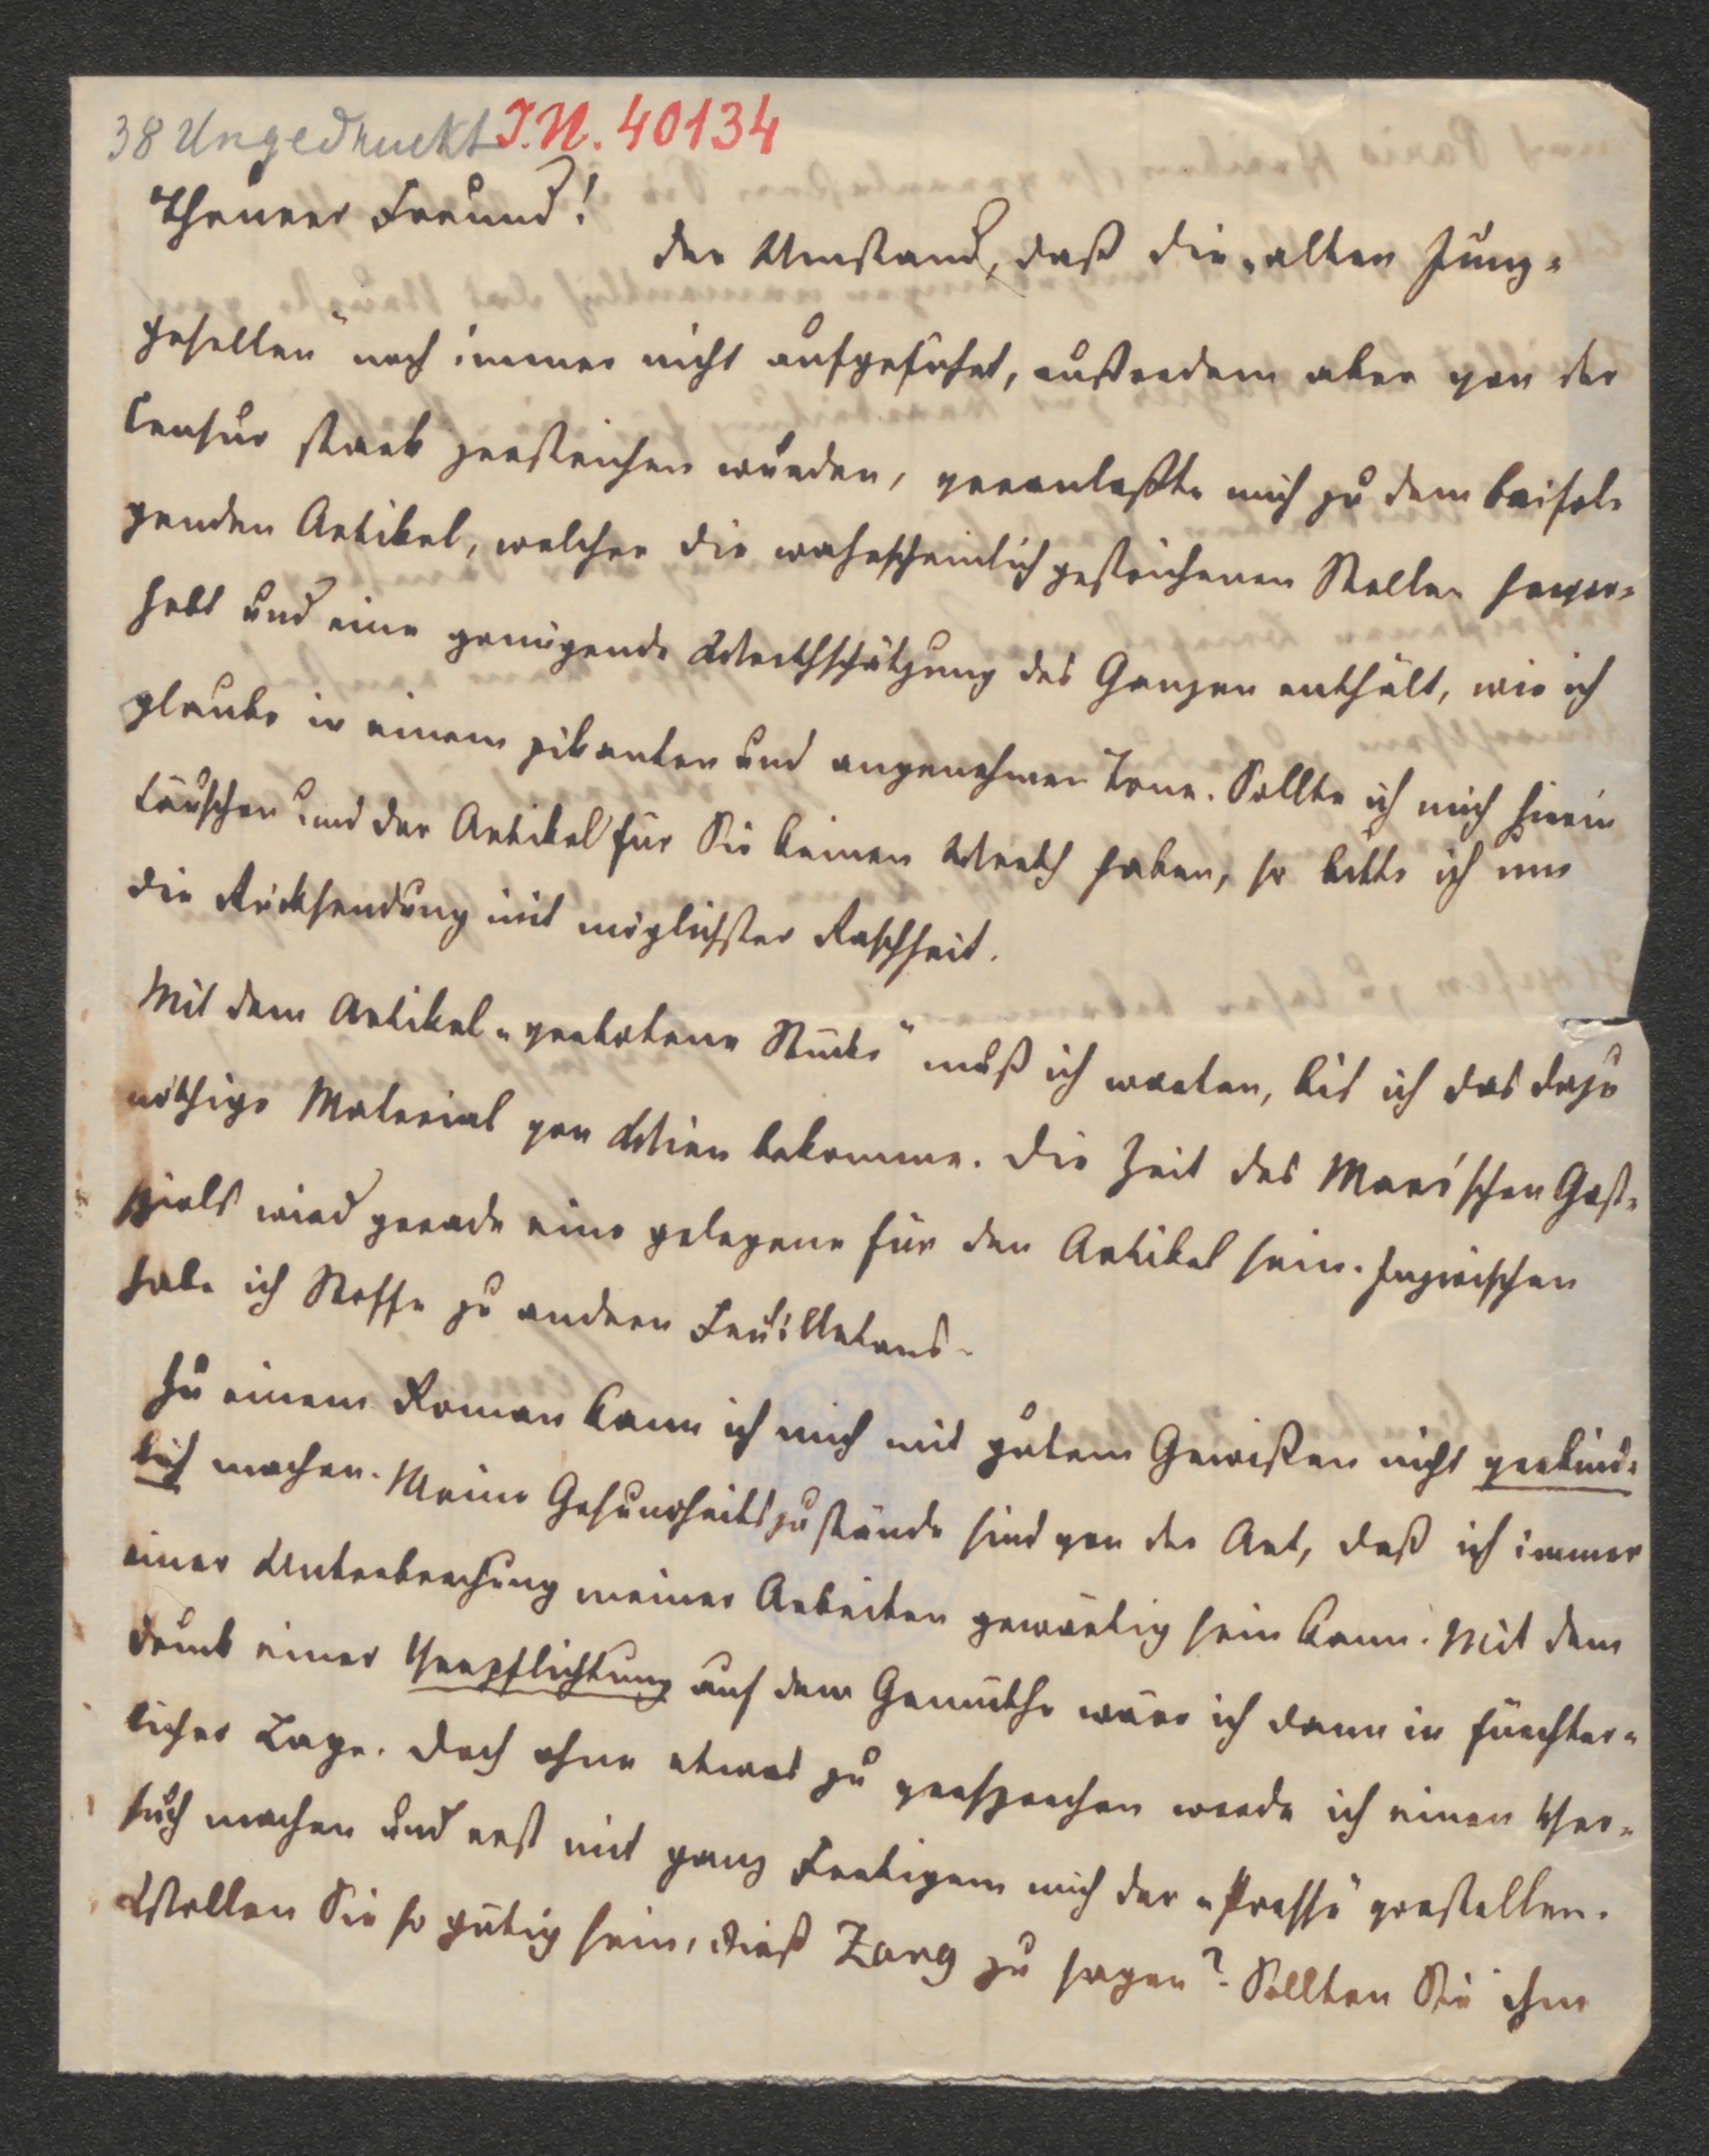 38 Ungedruckt I.N. 40134
Theurer Freund!
Der Umstand, daß die „alten Jung-
gesellen“ noch immer nicht aufgeführt, außerdem aber von der
Censur stark zerstrichen wurden, veranlaßte mich zu dem beifol-
genden Artikel, welcher die wahrscheinlich gestrichenen Stellen hervor-
hebt und eine genügende Werthschätzung des Ganzen enthält, wie ich
glaube in einem pikanten und angenehmen Tone. Sollte ich mich hierin
täuschen und der Artikel für Sie keinen Werth haben, so bitte ich um
die Rücksendung mit möglichster Raschheit.
Mit dem Artikel „verbotene Stücke“ muß ich warten, bis ich das dazu
nöthige Material von Wien bekomme. Die Zeit des Marr'schen Gast-
spiels wird gerade eine gelegene für den Artikel sein. Inzwischen
habe ich Stoffe zu andern Feuilletons.
Zu einem Roman kann ich mich mit gutem Gewißen nicht verbind-
lich machen. Meine Gesundheitszustände sind von der Art, daß ich immer
einer Unterbrechung meiner Arbeiten gewärtig sein kann. Mit dem
Druck einer Verpflichtung auf dem Gemüthe wäre ich dann in fürchter-
licher Lage. Doch ohne etwas zu versprechen werde ich einen Ver-
such machen und erst mit ganz Fertigem mich der „Presse“ vorstellen.
Wollen Sie so gütig sein, dieß Zang zu sagen? Sollten Sie ihm